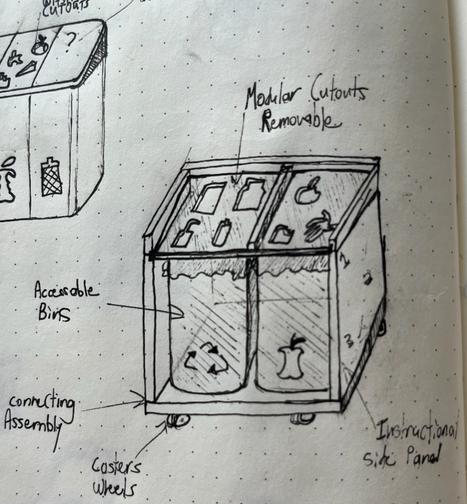 Cutouts
?
Modular Cutouts
Removable
1
2
3
Accessable
Bins
Connecting
Assembly
Casters
Wheels
Instructional
Side Panel